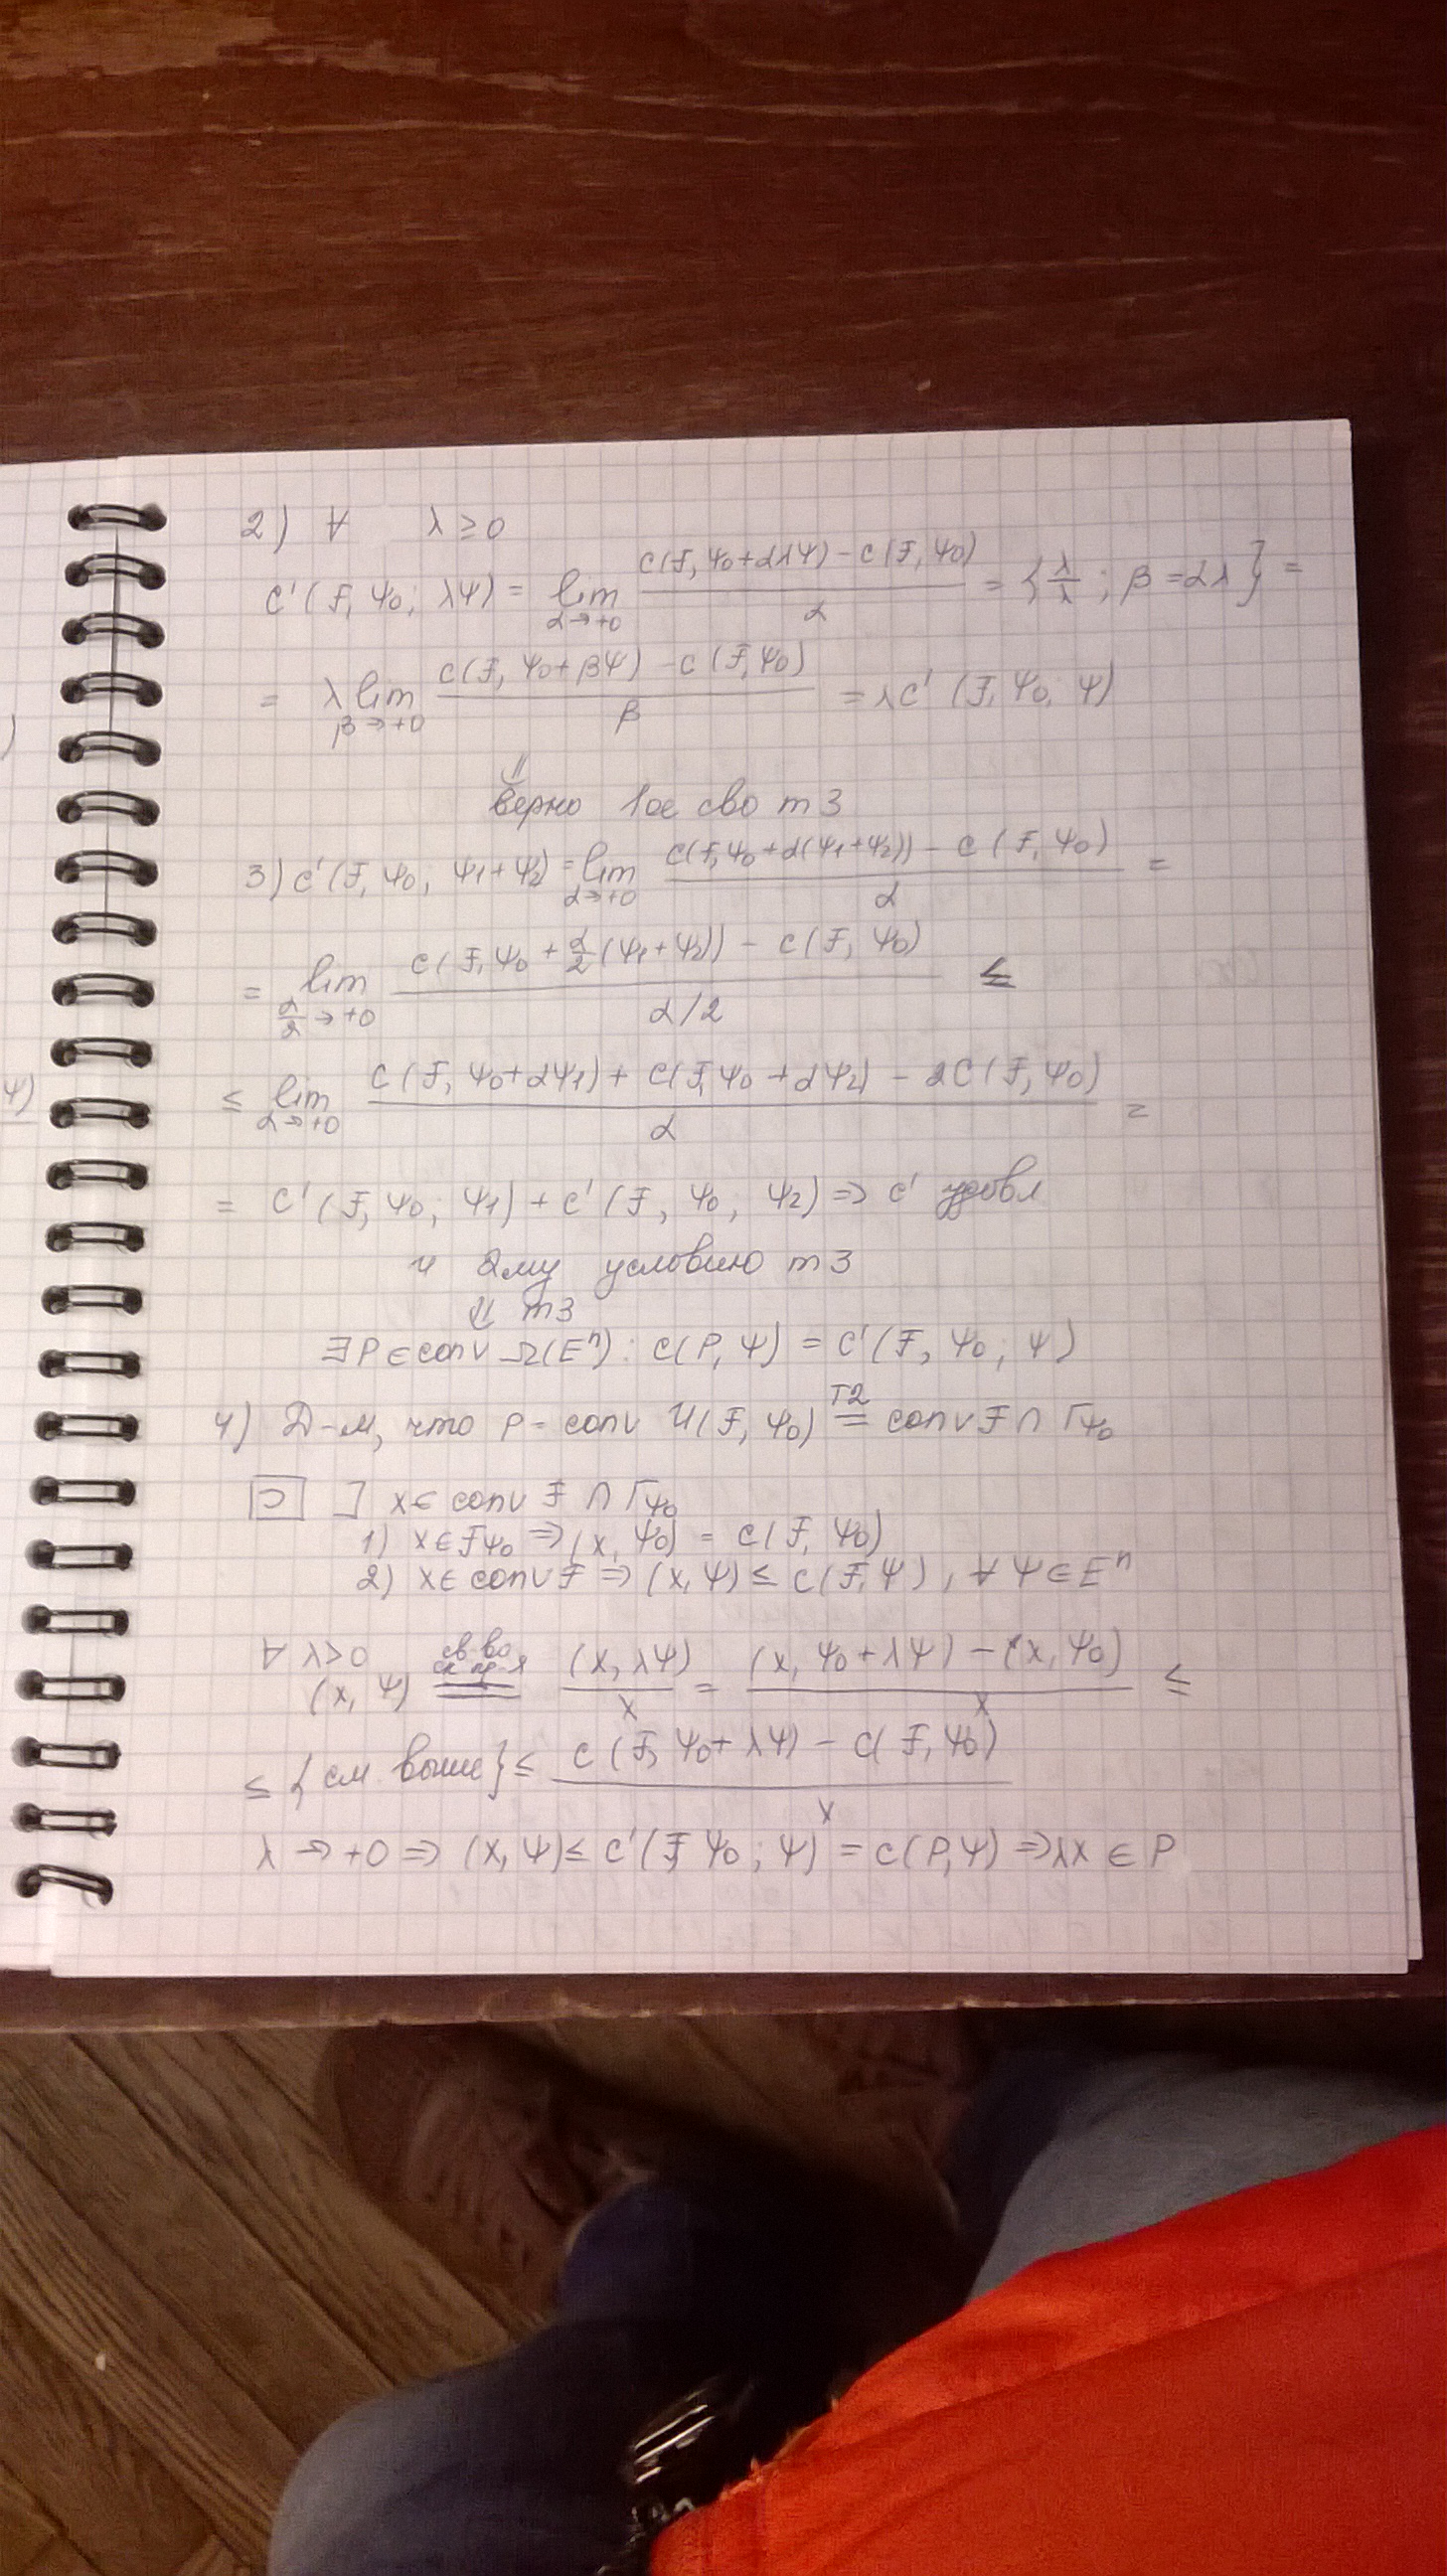 2) ∀ λ ≥ 0
C'(F, Ψ0; λΨ) = lim α→+0 (C(F, Ψ0+αλΨ) − C(F, Ψ0)) / α = {λ/λ ; β = αλ} =
= λ lim β→+0 (C(F, Ψ0+βΨ) − C(F, Ψ0)) / β = λC'(F, Ψ0; Ψ)
⇓
верно 1ое сво т3
3) C'(F, Ψ0, Ψ1+Ψ2) = lim α→+0 (C(F, Ψ0+α(Ψ1+Ψ2)) − C(F, Ψ0)) / α =
= lim α/2→+0 (C(F, Ψ0 + α/2 (Ψ1+Ψ2)) − C(F, Ψ0)) / α/2 ≤
≤ lim α→+0 (C(F, Ψ0+αΨ1) + C(F, Ψ0+αΨ2) − 2C(F, Ψ0)) / α =
= C'(F, Ψ0; Ψ1) + C'(F, Ψ0, Ψ2) ⇒ C' удовл
и 2му условию т3
⇓ т3
∃P ∈ conv Ω(E^n) : C(P, Ψ) = C'(F, Ψ0; Ψ)
4) Д-м, что P = conv U(F, Ψ0) =^{T2} conv F ∩ ΓΨ0
⊃ ] x ∈ conv F ∩ ΓΨ0
1) x ∈ FΨ0 ⇒ (x, Ψ0) = C(F, Ψ0)
2) x ∈ conv F ⇒ (x, Ψ) ≤ C(F, Ψ), ∀ Ψ ∈ E^n
∀ λ<0
(x, Ψ) =^{св-во} (x, λΨ) / λ = ((x, Ψ0+λΨ) − (x, Ψ0)) / λ ≤
≤ {см. выше} ≤ (C(F, Ψ0+λΨ) − C(F, Ψ0)) / λ
λ → +0 ⇒ (x, Ψ) ≤ C'(F, Ψ0; Ψ) = C(P, Ψ) ⇒ λx ∈ P
Ψ)